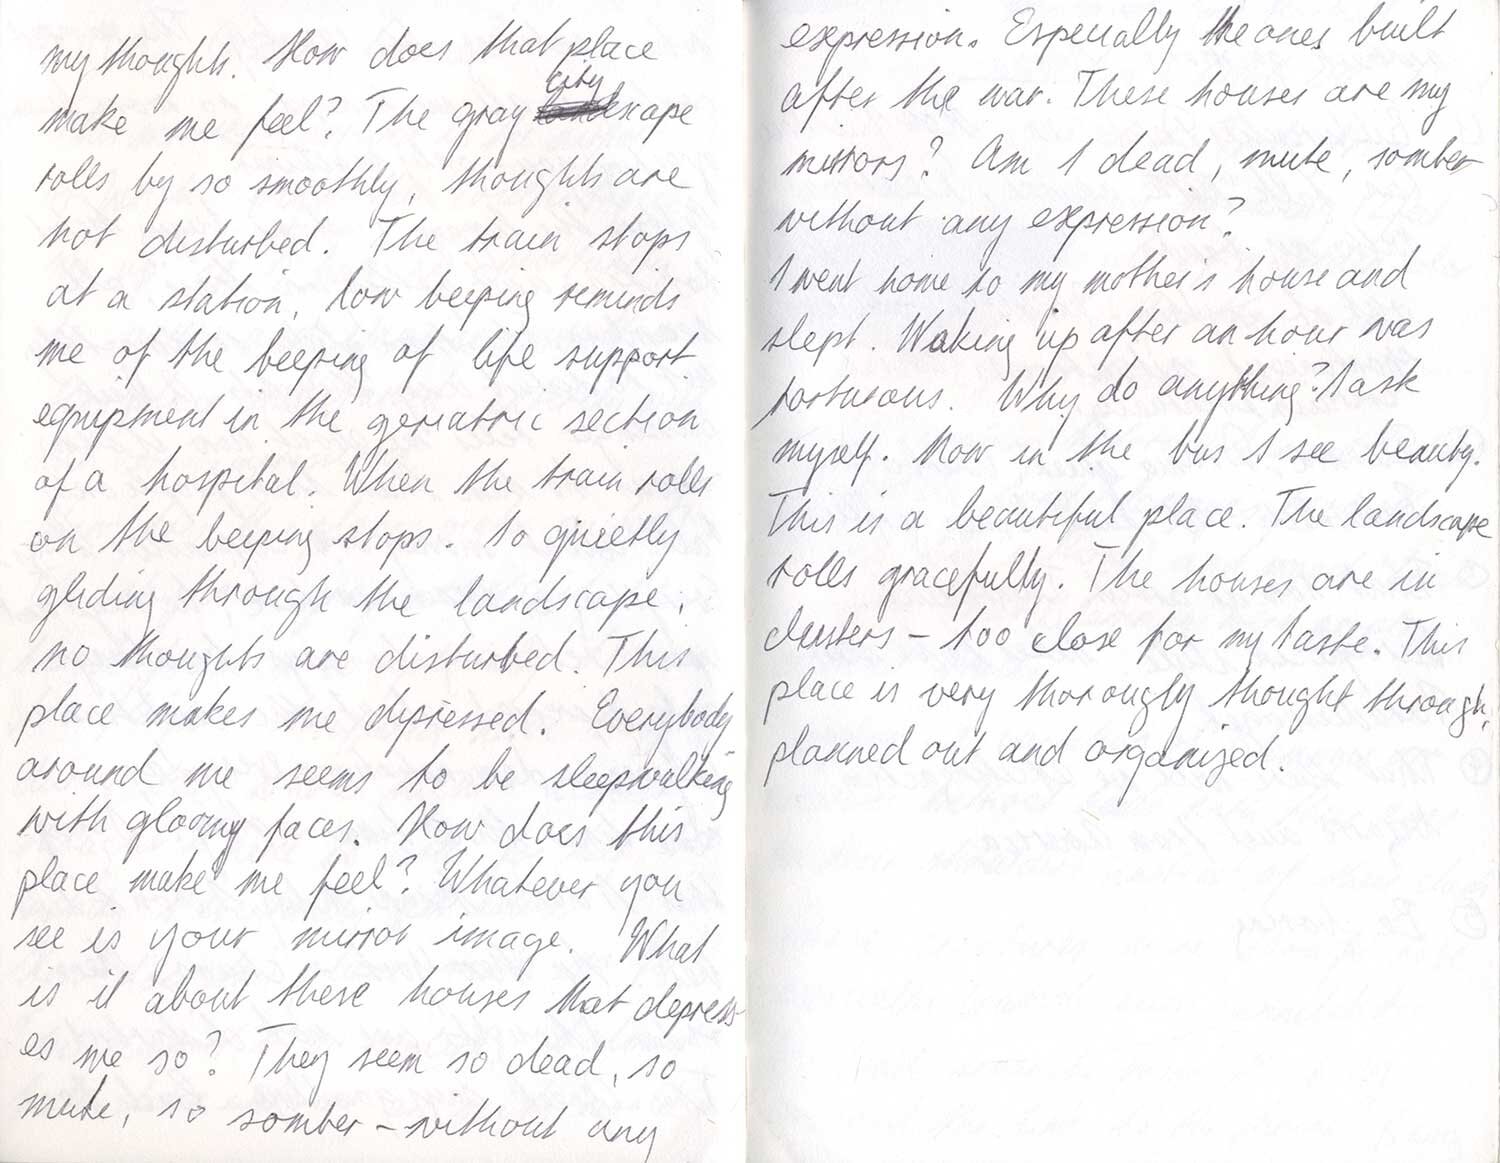 my thoughts. How does that place
make me feel? The gray cityscape
rolls by so smoothly, thoughts are
not disturbed. The train stops
at a station, low beeping reminds
me of the beeping of life support
equipment in the geriatric section
of a hospital. When the train rolls
on the beeping stops. So quietly
gliding through the landscape,
no thoughts are disturbed. This
place makes me depressed. Everybody
around me seems to be sleepwalking
with gloomy faces. How does this
place make me feel? Whatever you
see is your mirror image. What
is it about these houses that depress-
es me so? They seem so dead, so
mute, so somber – without any
expression. Especially the ones built
after the war. These houses are my
mirrors? Am I dead, mute, somber
without any expression?
I went home to my mother's house and
slept. Waking up after an hour was
tortuous. Why do anything? I ask
myself. Now in the bus I see beauty.
This is a beautiful place. The landscape
rolls gracefully. The houses are in
clusters – too close for my taste. This
place is very thorougly thought through,
planned out and organized.